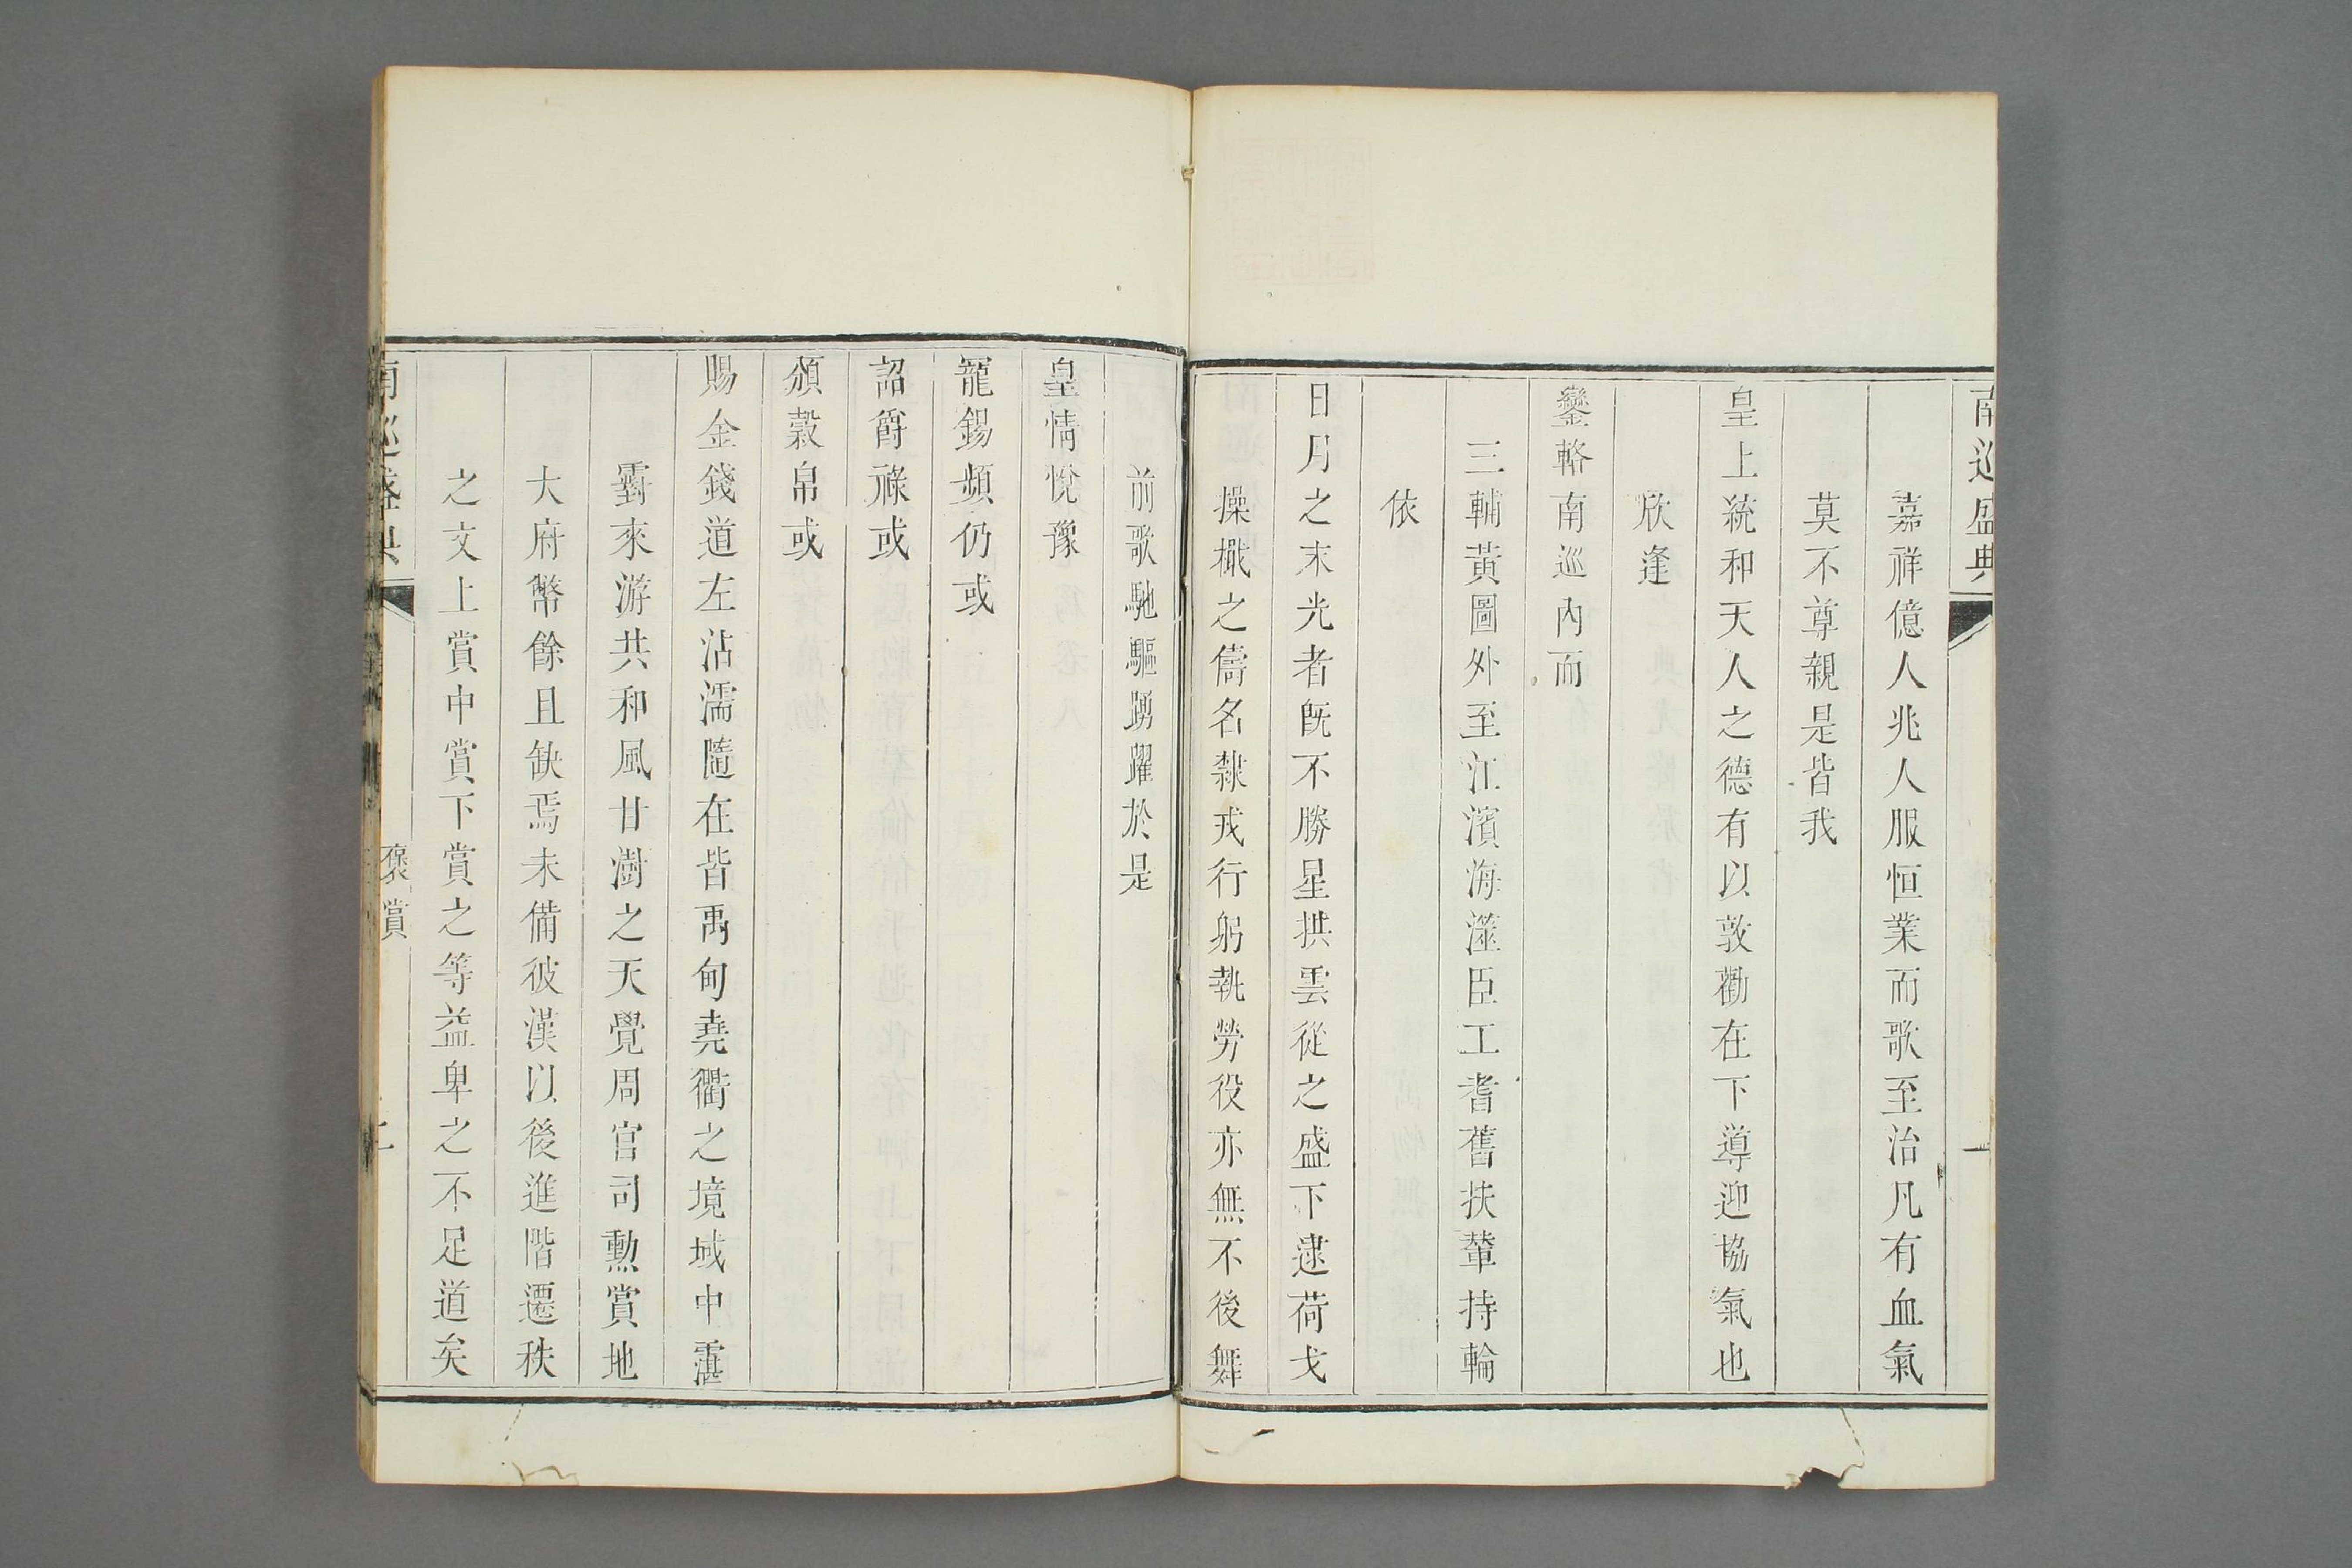 南巡盛典
嘉祥億人兆人服恒業而歌至治凡有血氣
莫不尊親是皆我
皇上統和天人之德有以敦勸在下導迎協氣也
欣逢
鑾輅南巡內而
三輔黃圖外至江濱海澨臣工耆舊扶輦持輪
依
日月之末光者旣不勝星拱雲從之盛下逮荷戈
操檝之儔名隸戎行躬執勞役亦無不後舞
前歌馳驅踴躍於是
皇情悅豫
寵錫頻仍或
詔爵祿或
頒穀帛或
賜金錢道左沾濡隨在皆禹甸堯衢之境域中霑
霨來游共和風甘澍之天覺周官司勳賞地
大府幣餘且缺焉未備彼漢以後進階遷秩
之文上賞中賞下賞之等益卑之不足道矣
南巡盛典
褒賞